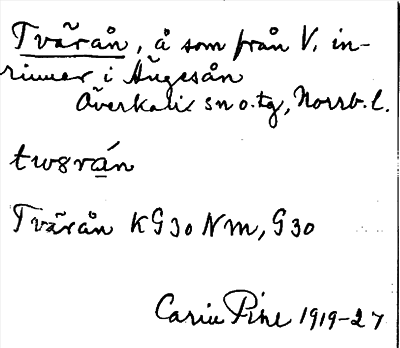 Tvärån, å som från V. in-
rinner i Ängesån
Överkalix sn o. tg, Norrb. l.
twərán
Tvärån KG30 NM, G30
Carin Pihl 1919-27